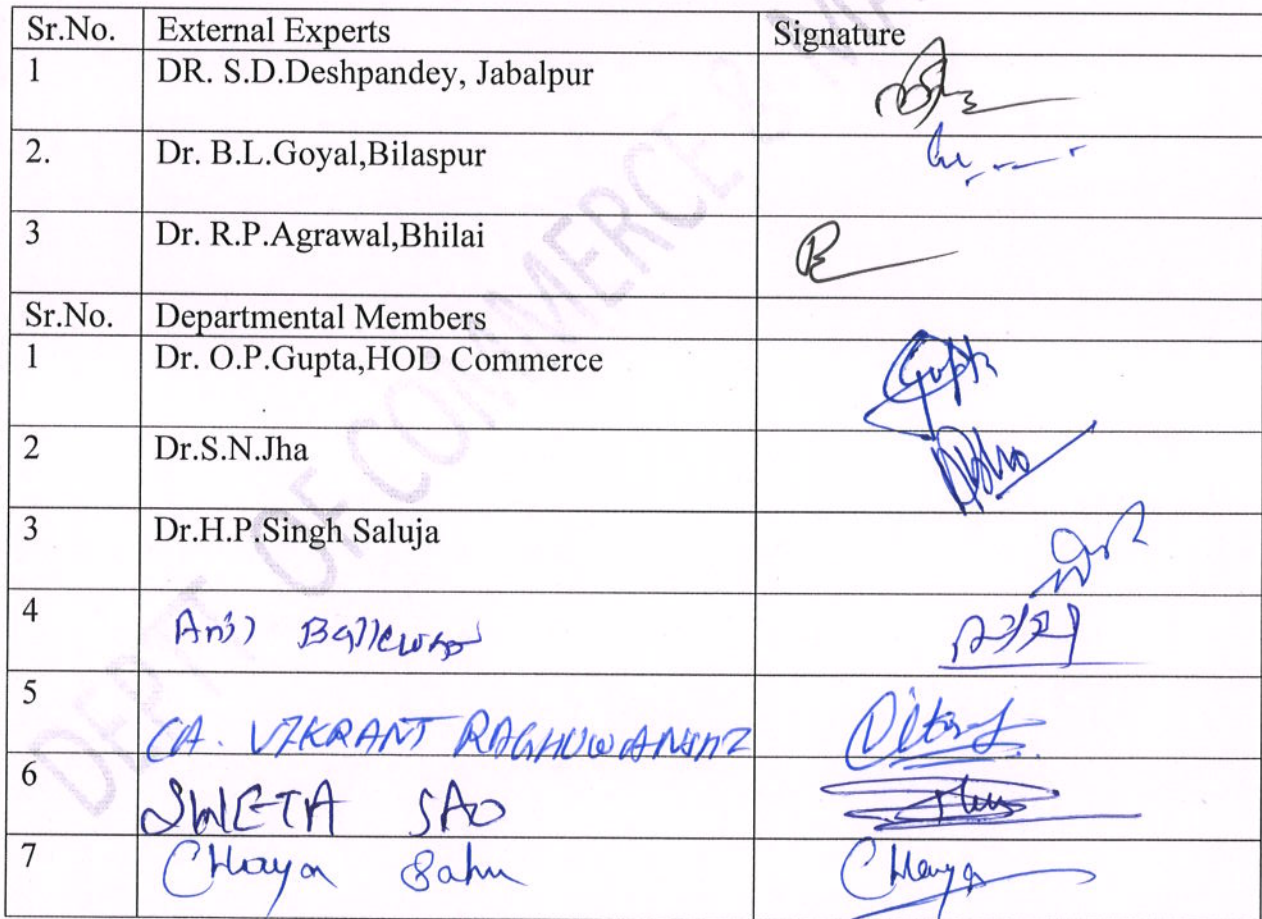 Sr.No. External Experts Signature
1 DR. S.D.Deshpandey, Jabalpur
2. Dr. B.L.Goyal,Bilaspur
3 Dr. R.P.Agrawal,Bhilai
Sr.No. Departmental Members
1 Dr. O.P.Gupta,HOD Commerce Gupta
2 Dr.S.N.Jha
3 Dr.H.P.Singh Saluja
4 Anil
5 CA. VIKRANT RAGHUWANSHI
6 SWETA SAO
7 CHhaya Sahu CHhaya
DEPTT OF COMMERCE